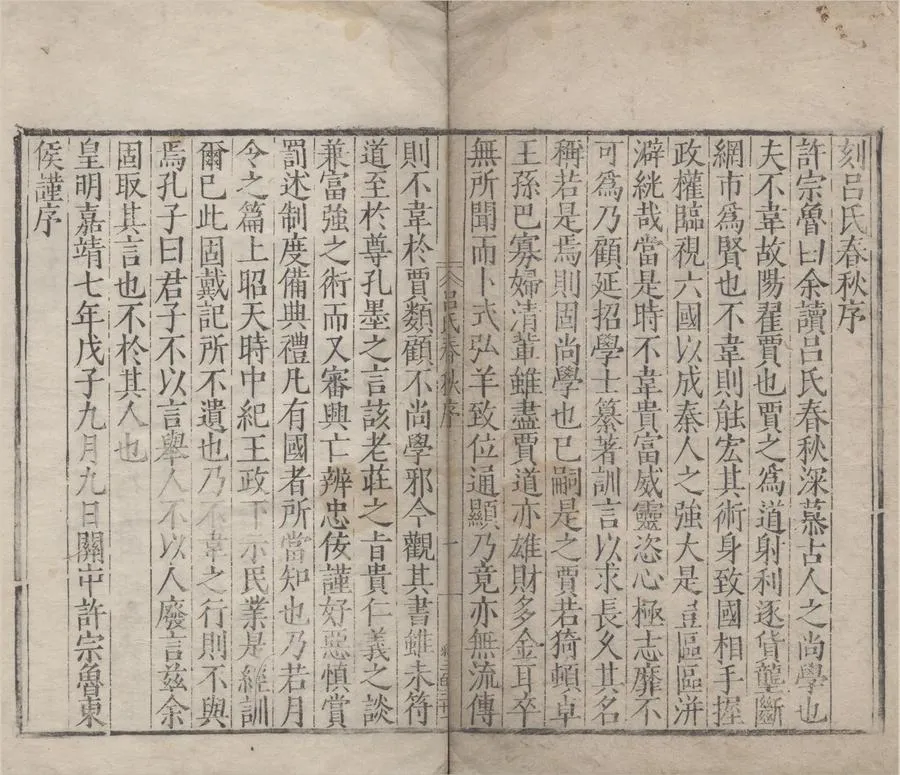 刻呂氏春秋序
許宗魯曰余讀呂氏春秋深慕古人之尚學也
夫不韋故陽翟賈也賈之為道射利逐貨壟斷
網市為賢也不韋則能宏其術身致國相手握
政權臨視六國以成秦人之強大是豈區區洴
澼絖哉當是時不韋貴富威靈恣心極志靡不
可為乃顧延招學士纂著訓言以求長久其名
稱若是焉則固尚學也已嗣是之賈若猗頓卓
王孫巴寡婦清軰雖盡賈道亦雄財多金耳卒
無所聞而卜式弘羊致位通顯乃竟亦無流傳
呂氏春秋序
一
則不韋於賈類顧不尚學邪今觀其書雖未符
道至於尊孔墨之言該老莊之旨貴仁義之談
兼富強之術而又審興亡辨忠佞謹好惡慎賞
罰述制度備典禮凡有國者所當知也乃若月
令之篇上昭天時中紀王政下示民業是經訓
爾已此固戴記所不遺也乃不韋之行則不與
焉孔子曰君子不以言舉人不以人廢言茲余
固取其言也不於其人也
皇明嘉靖七年戊子九月九日關中許宗魯東
侯謹序